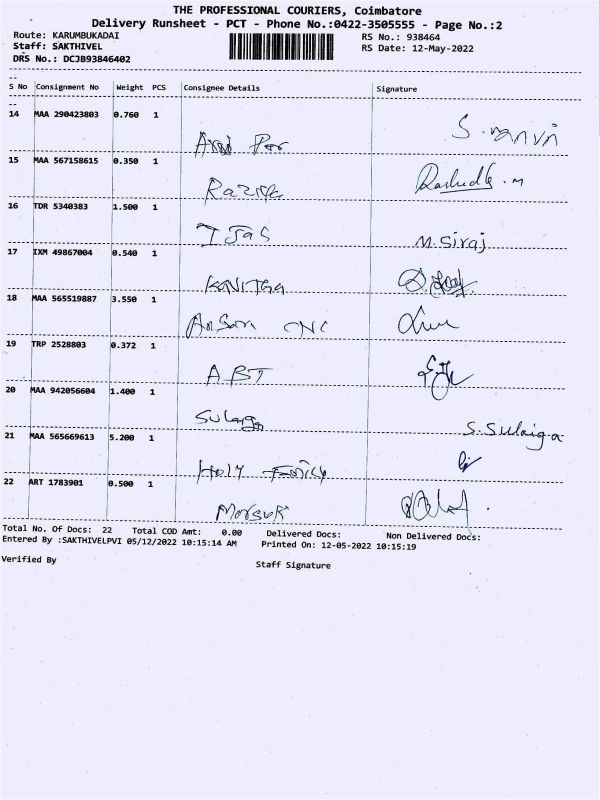 THE PROFESSIONAL COURIERS, Coimbatore
Delivery Runsheet - PCT - Phone No.:0422-3505555 - Page No.:2
Route: KARUMBUKADAI
RS No.: 938464
Staff: SAKTHIVEL
RS Date: 12-May-2022
DRS No.: DCJB93846402
S No Consignment No Weight PCS Consignee Details Signature
14 MAA 290423803 0.760 1
15 MAA 567158615 0.350 1
Razik
16 TDR 5340383 1.500 1
IJas M.Siraj
17 IXM 49867004 0.540 1
KAVITHA
18 MAA 565519887 3.550 1
CNC
19 TRP 2528803 0.372 1
ABT
20 MAA 942056604 1.400 1
Sulaiga S.Sulaiga
21 MAA 565669613 5.200 1
Holy Family
22 ART 1783901 0.500 1
Total No. Of Docs: 22 Total COD Amt: 0.00 Delivered Docs: Non Delivered Docs:
Entered By :SAKTHIVELPVI 05/12/2022 10:15:14 AM Printed On: 12-05-2022 10:15:19
Verified By
Staff Signature